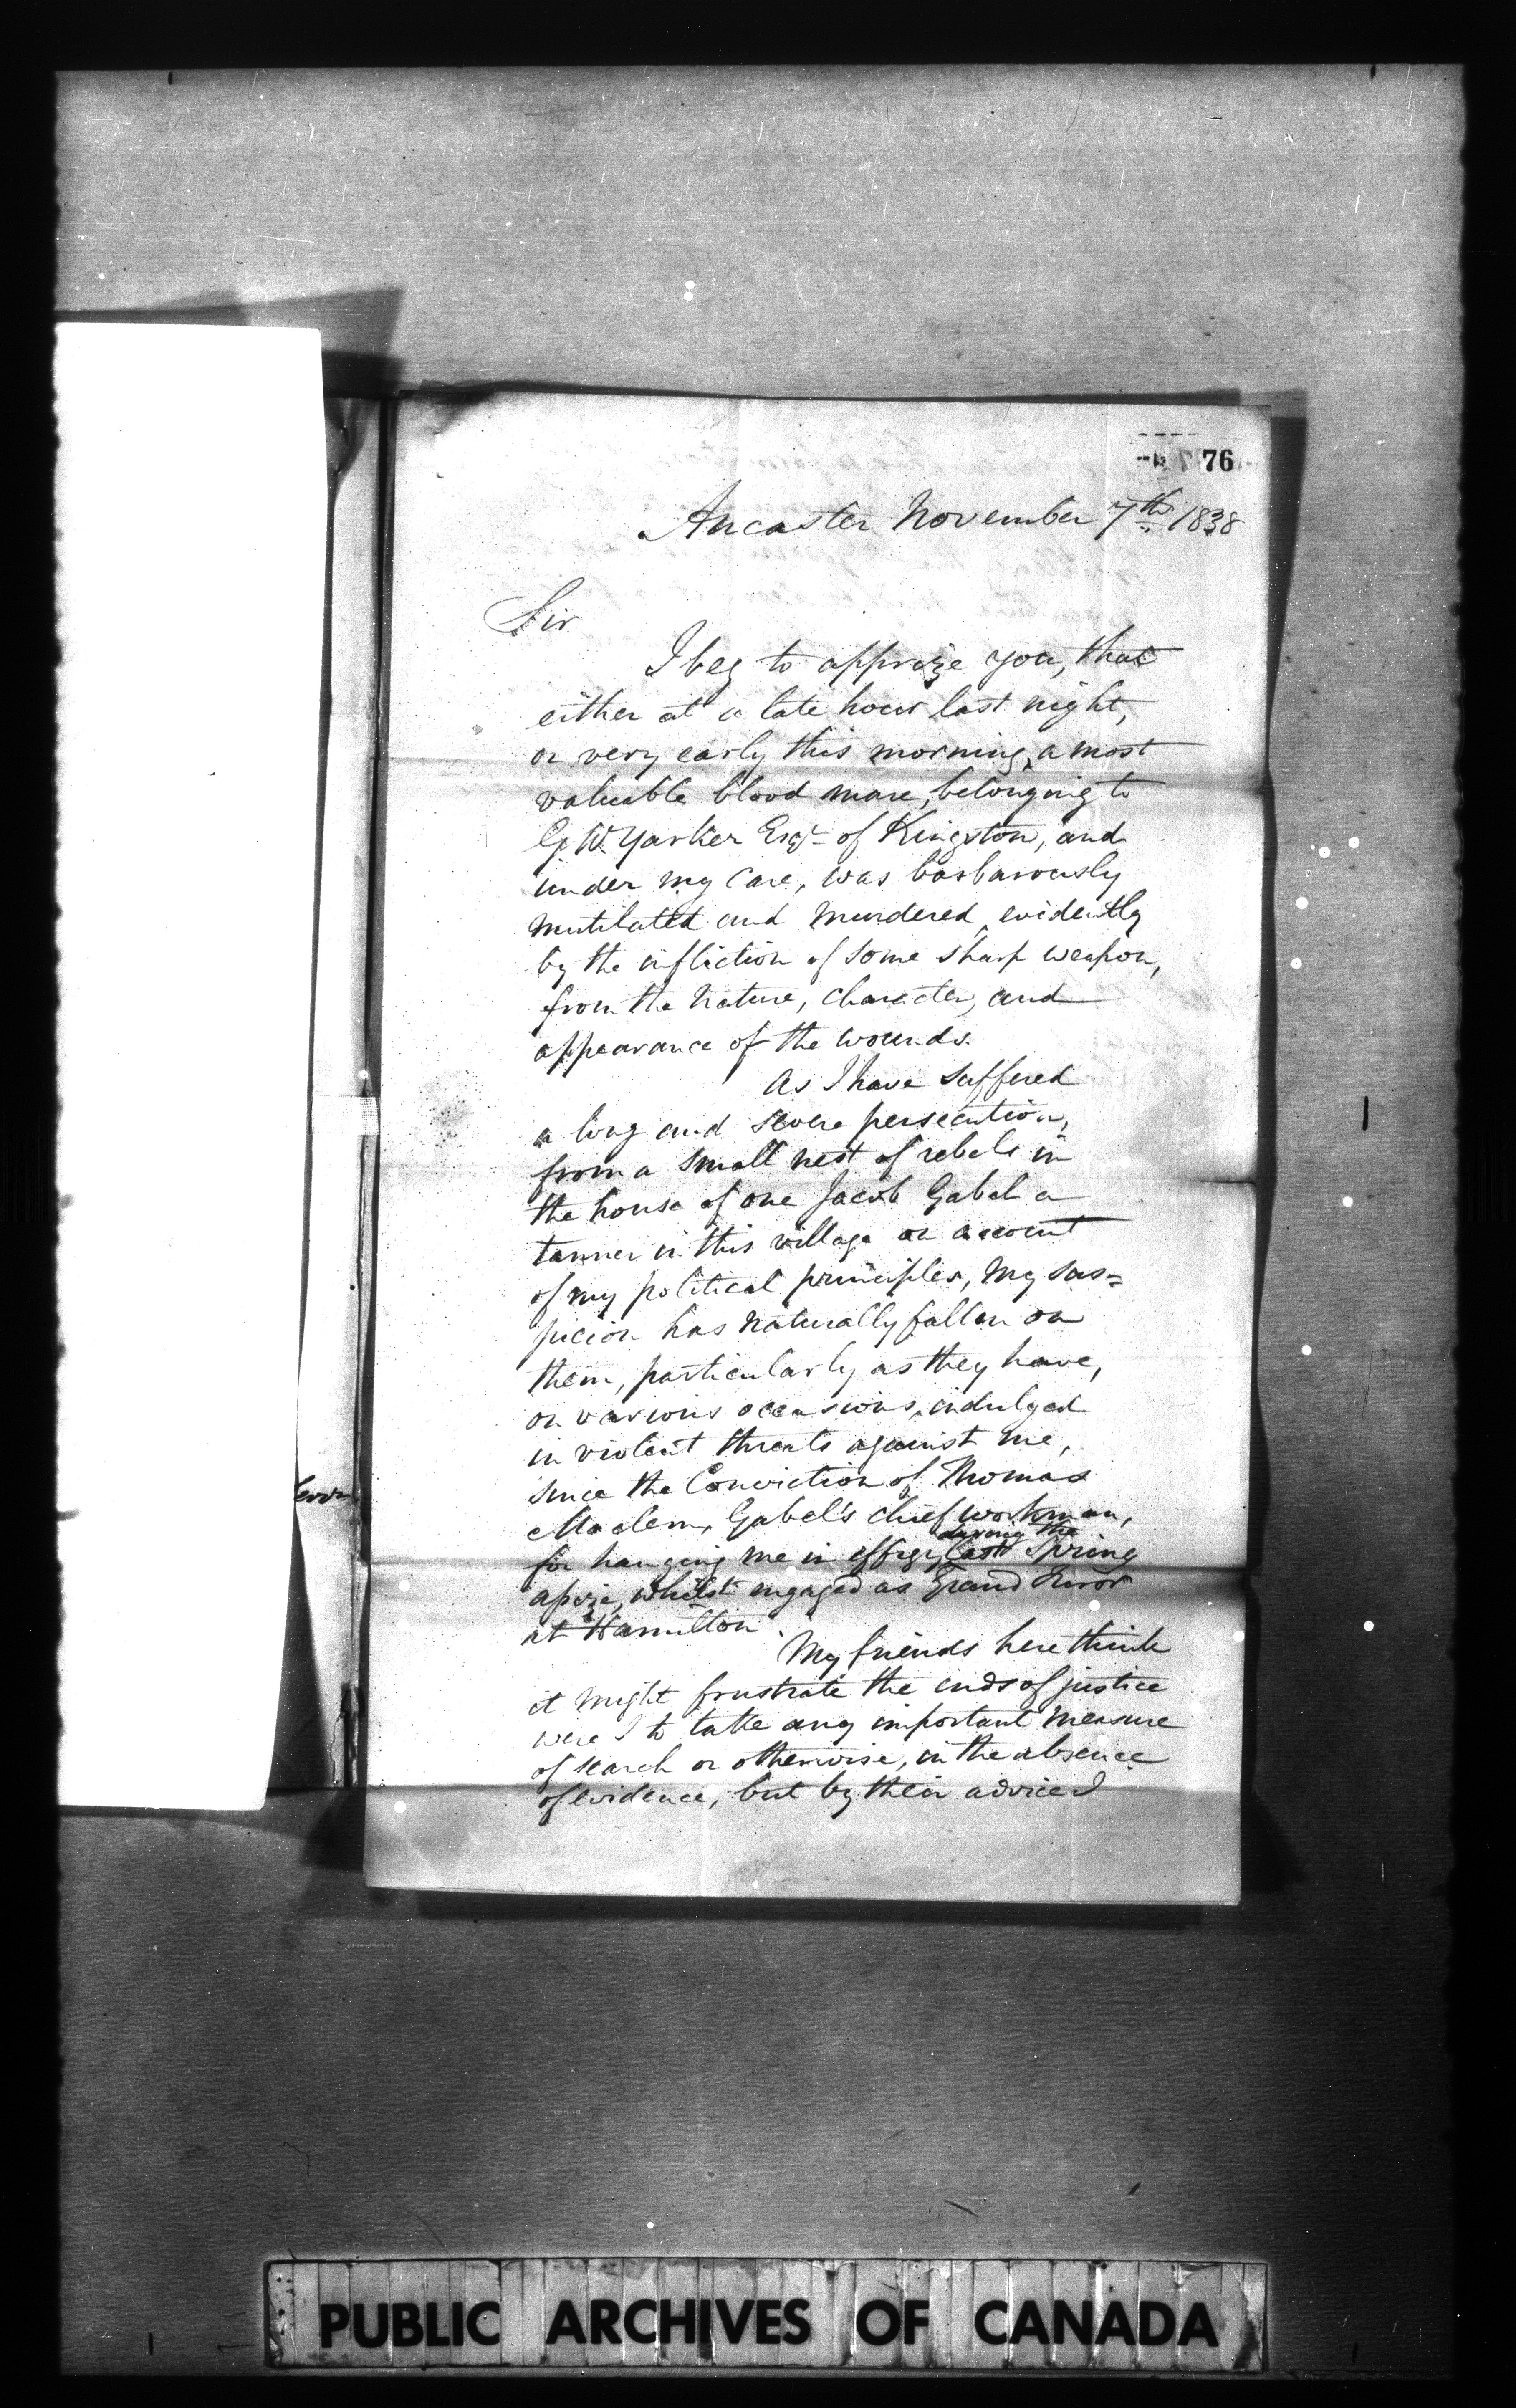 76
Ancaster November 7th 1838
Sir
I beg to apprize you, that
either at a late hour last night,
or very early this morning, a most
valuable blood mare, belonging to
G. W. Yarker Esqr of Kingston, and
under my care, was barbarously
mutilated and murdered, evidently
by the infliction of some sharp weapon,
from the nature, character, and
appearance of the wounds.
As I have suffered
a long and severe persecution,
from a small nest of rebels in
the house of one Jacob Gabel a
tanner in this village on account
of my political principles, my sus=
picion has naturally fallen on
them, particularly as they have,
on various occasions, indulged
in violent threats against me,
since the Conviction of Thomas
Maclem, Gabel's chief workman,
during the
for hanging me in effigy, last Spring
assize, whilst engaged as Grand Juror
at Hamilton.
My friends here think
it might frustrate the ends of justice
were I to take any important measure
of search or otherwise, in the absence
of evidence, but by their advice I
PUBLIC ARCHIVES OF CANADA